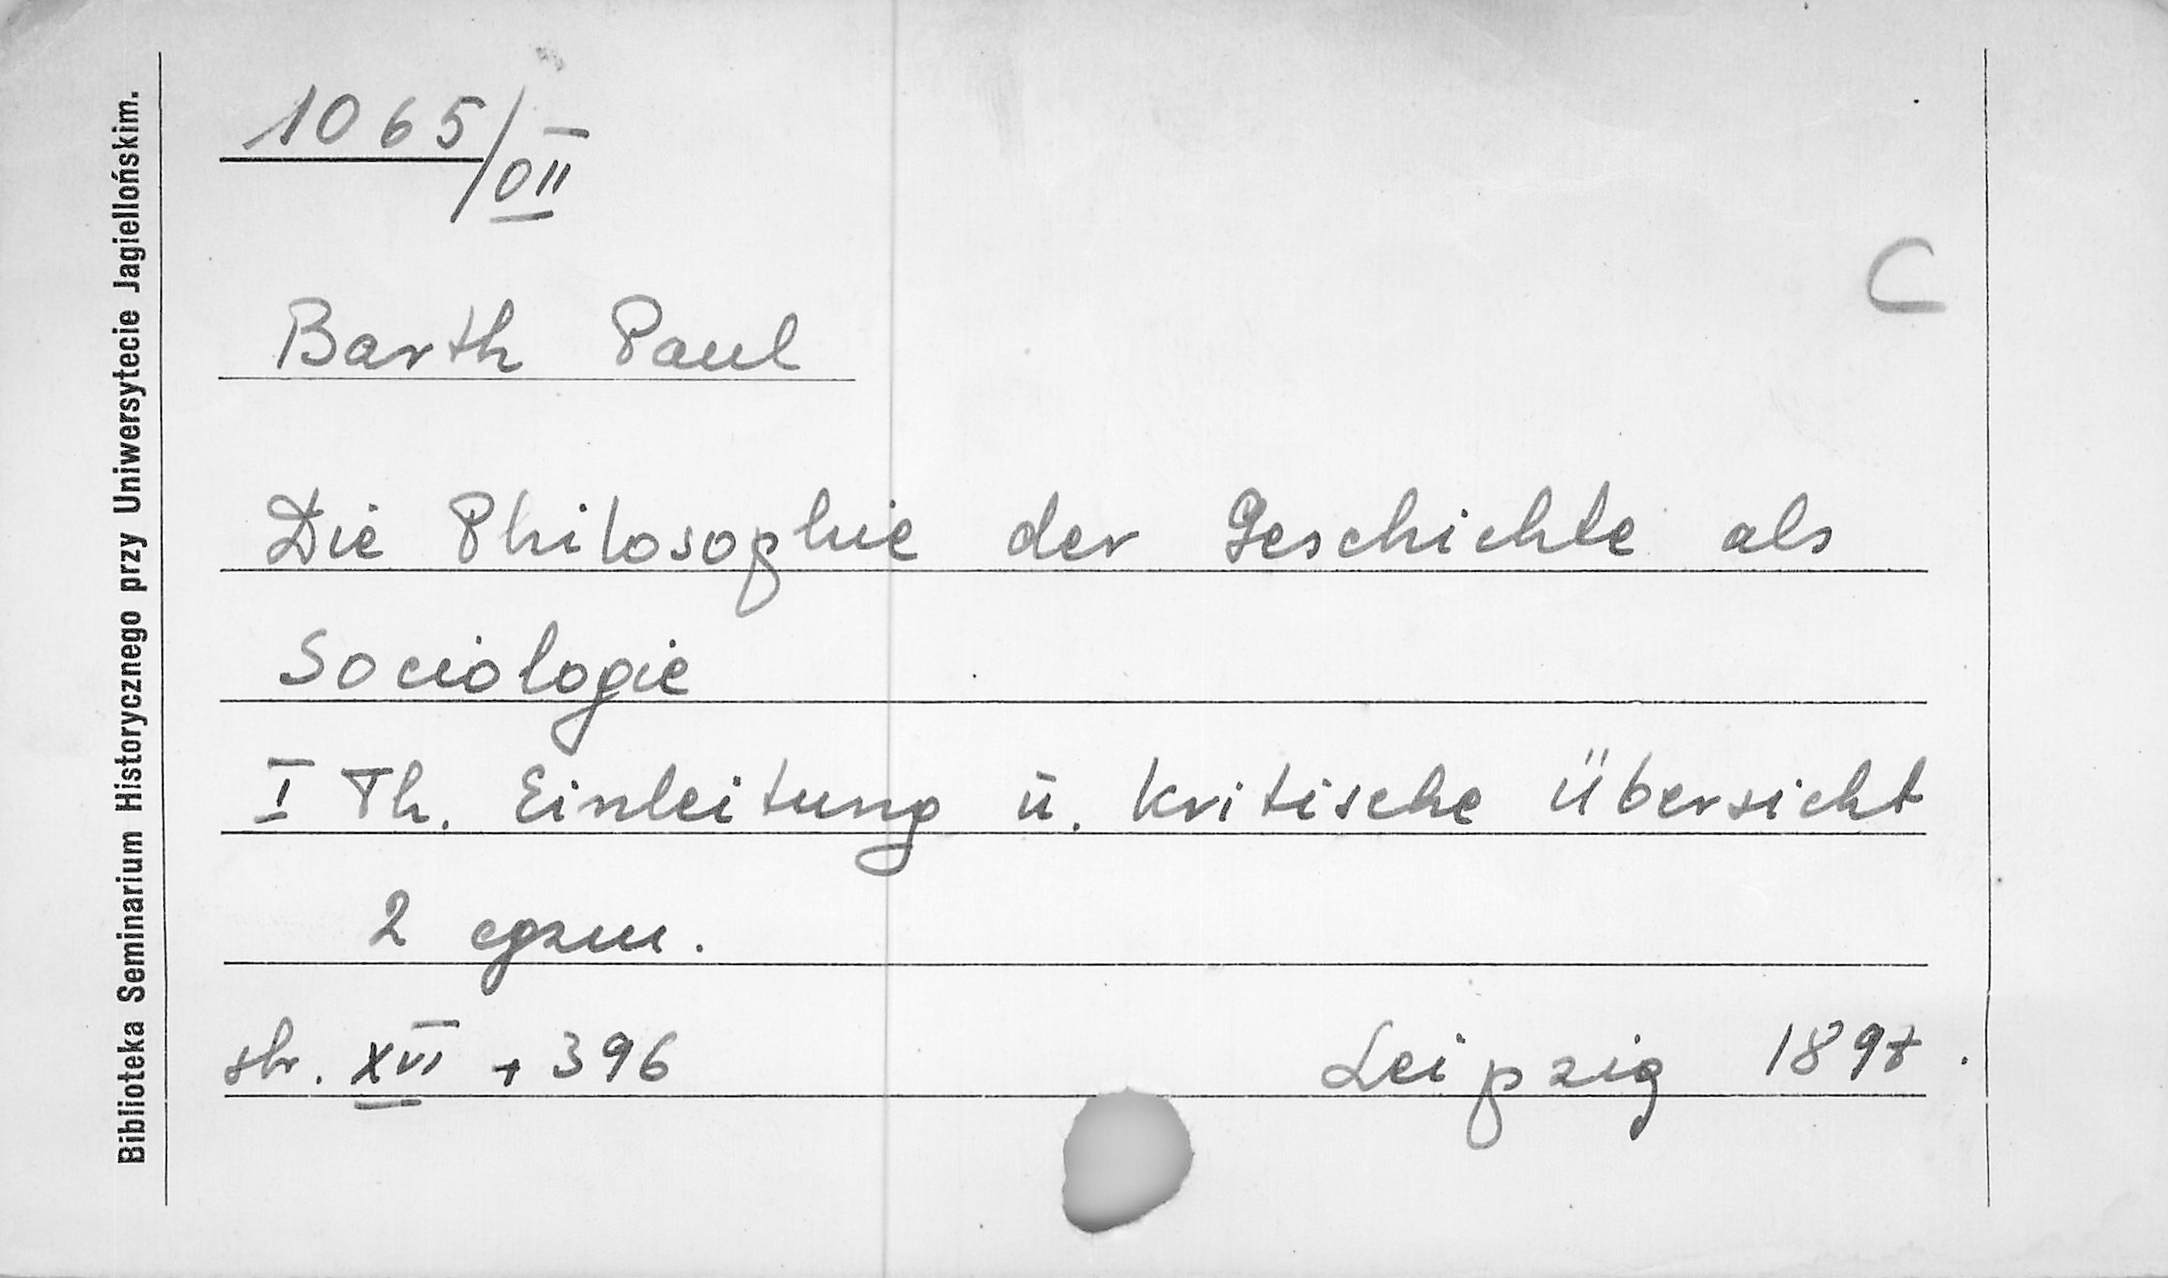 1065/OII
C
Barth Paul
Die Philosophie der Geschichte als
Sociologie
I Th. Einleitung ū. kritische Übersicht
2 egzem.
str. XVI + 396 Leipzig 1897.
Biblioteka Seminarium Historycznego przy Uniwersytecie Jagiellońskim.